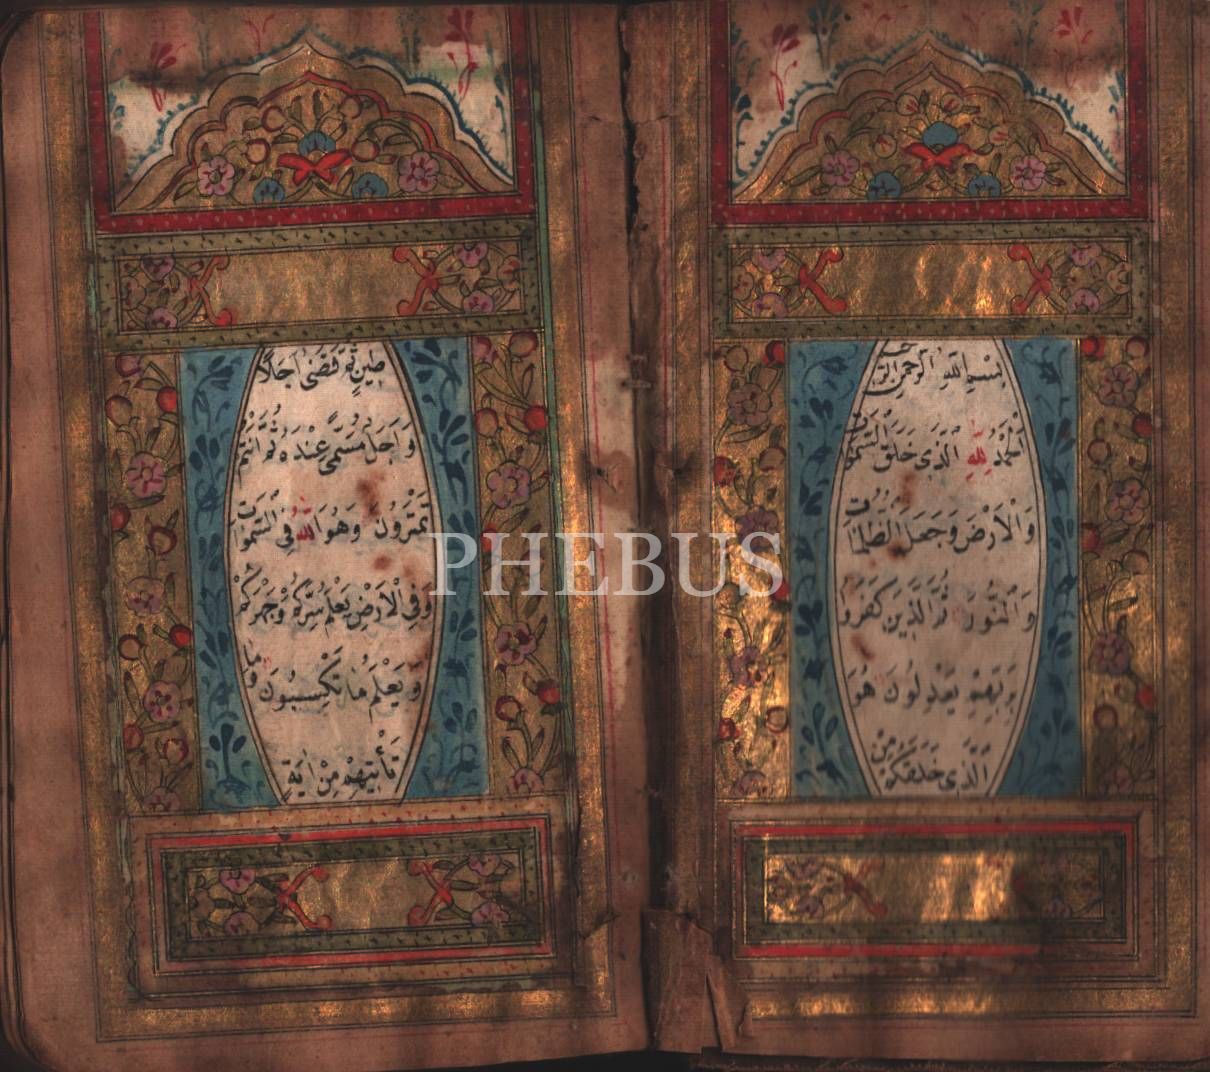 بسم الله الرحمن الرحيم
اَلْحَمْدُ لِلّٰهِ الَّذِى خَلَقَ السَّمٰوَاتِ
وَالْاَرْضَ وَجَعَلَ الظُّلُمَاتِ
وَالنُّورَ ثُمَّ الَّذِينَ كَفَرُوا
بِرَبِّهِمْ يَعْدِلُونَ هُوَ
الَّذِى خَلَقَكُمْ مِنْ
طِينٍ ثُمَّ قَضٰى اَجَلاً
وَاَجَلٌ مُسَمًّى عِنْدَهُ ثُمَّ اَنْتُمْ
تَمْتَرُونَ وَهُوَ اللّٰهُ فِى السَّمٰوَاتِ
وَفِى الْاَرْضِ يَعْلَمُ سِرَّكُمْ وَجَهْرَكُمْ
وَيَعْلَمُ مَا تَكْسِبُونَ وَمَا
تَأْتِيهِمْ مِنْ اٰيَةٍ
PHEBUS